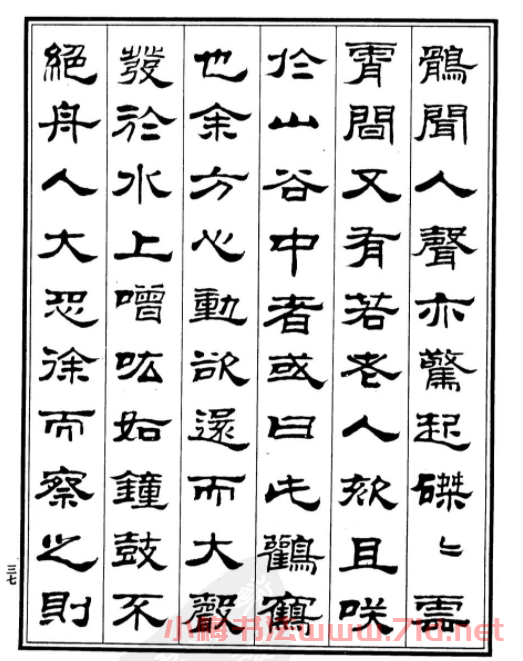 鶻聞人聲亦驚起磔〻雲
霄間又有若老人欬且咲
於山谷中者或曰此鸛鶴
也余方心動欲還而大聲
發於水上噌吰如鐘鼓不
絕舟人大恐徐而察之則
三七
小梅书法www.71d.net